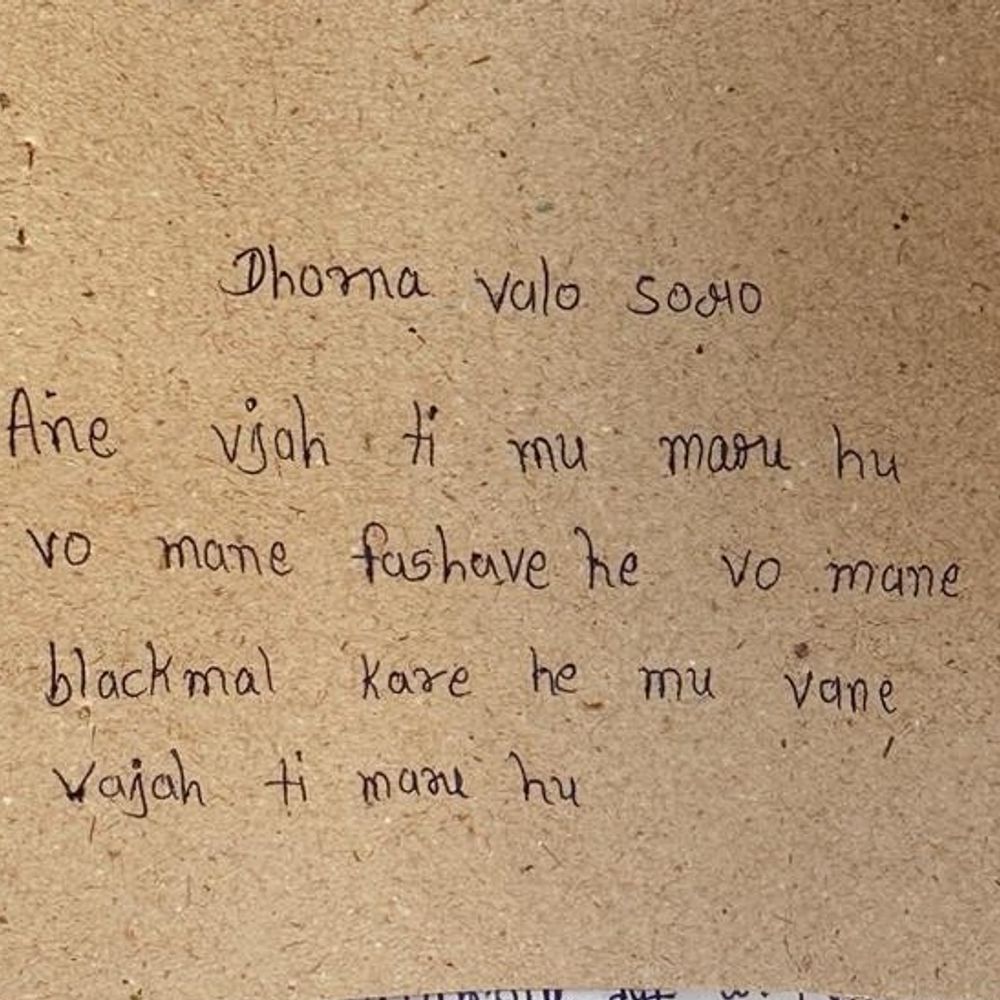 Dhorna valo soro
Ane vjah ti mu maru hu
vo mane fashave he vo mane
blackmal kare he mu vane
vajah ti maru hu